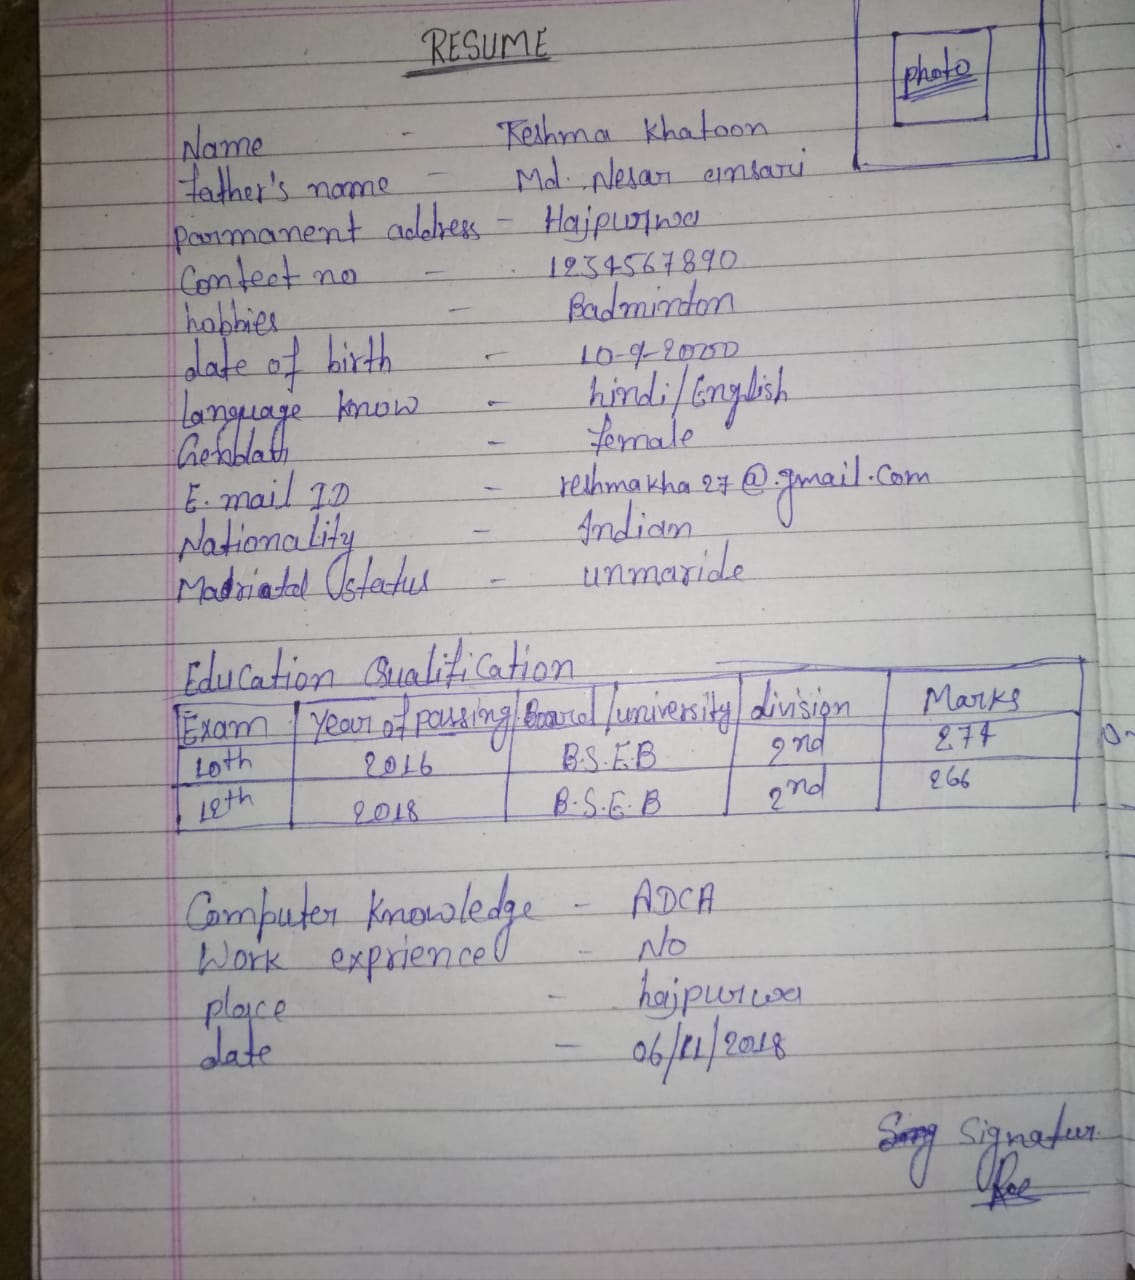 RESUME
photo
Name - Reshma Khatoon
father's name - Md. Nesar ansari
parmanent address - Hajpurwa
Contect no - 1234567890
hobbies - Badminton
date of birth - 10-9-2000
Language know - hindi/English
- female
E.mail ID - reshmakha27@.gmail.com
Nationality - Indian
Madriatal Ostatus - unmaride
Education Qualification
Exam Year of passing Board/university division Marks
10th 2016 B.S.E.B 2nd 277
12th 2018 B.S.E.B 2nd 266
Computer Knowledge - ADCA
Work exprience - No
place - hajpurwa
date - 06/11/2018
Signatur